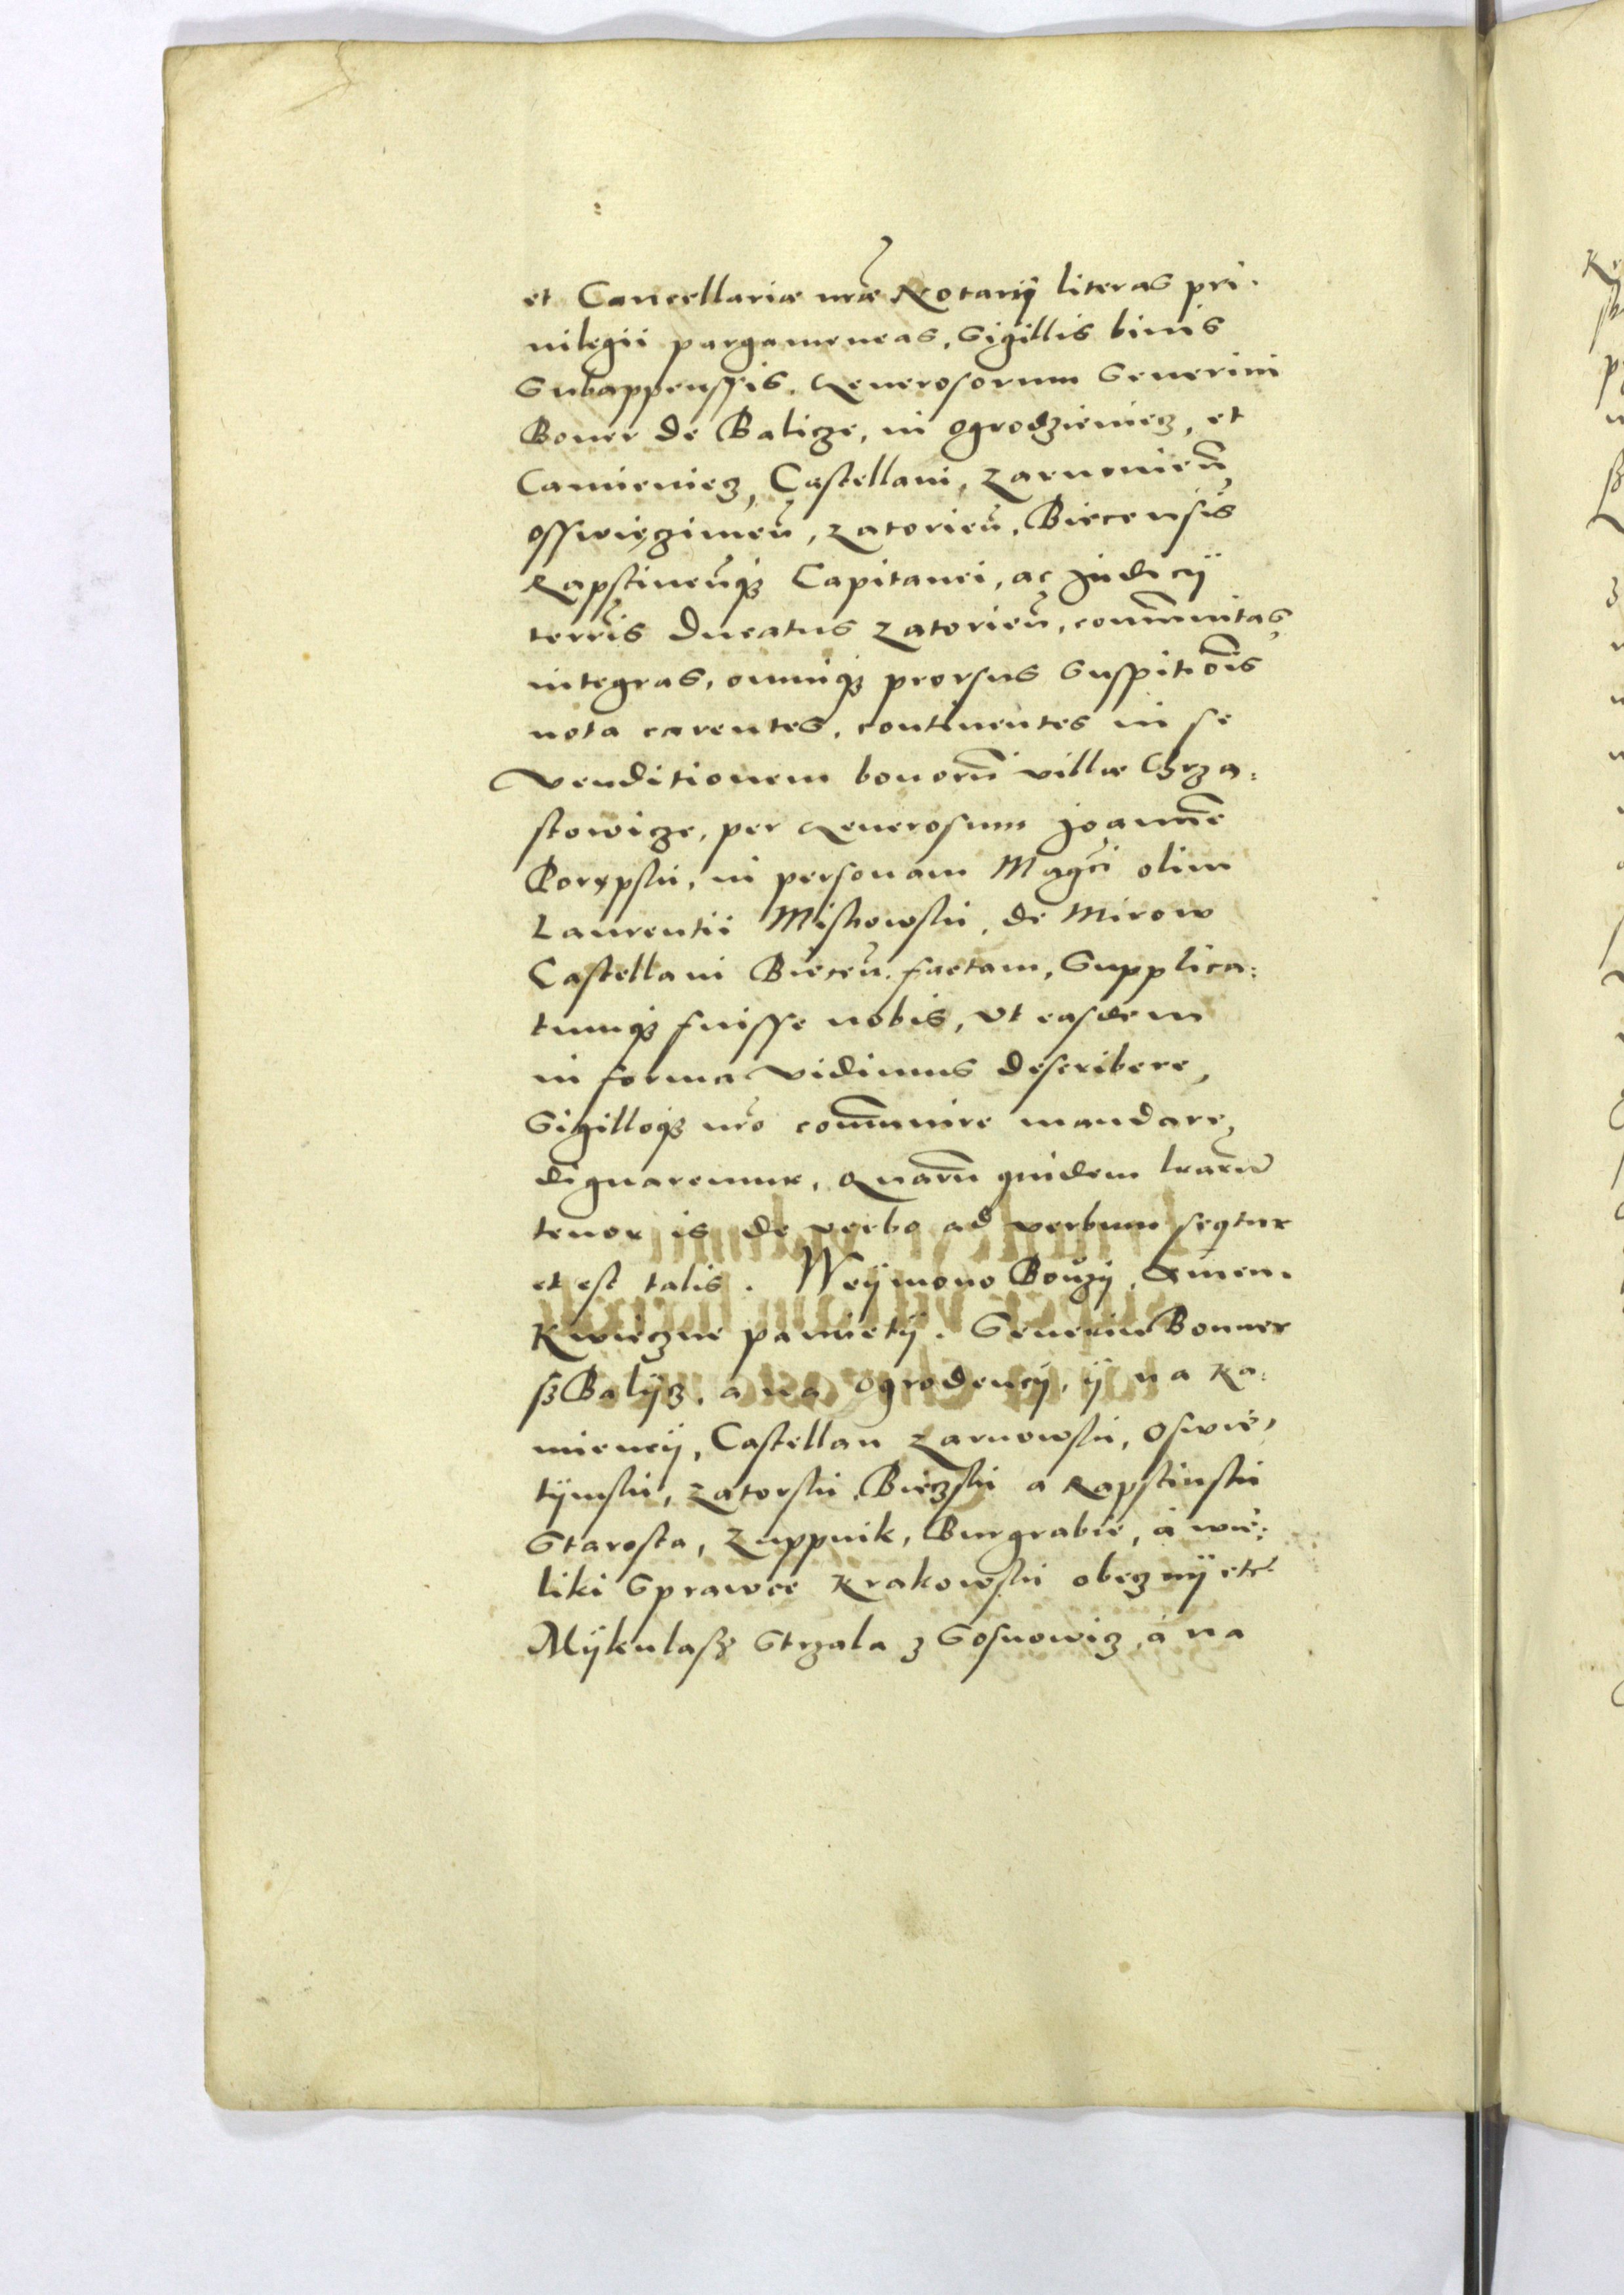 et Cancellariæ nr̃æ Notarij literas pri.
uilegii pargameneas, Sigillis binis
Subappensis. Generosorum Seuerini
Boner de Balicze, in Ogrodzienicz, et
Camienicz, Castellani, Zarnouien̄,
Osswięczimen̄, Zatorien̄, Biecensis
Rapstinen̄qꝫ Capitanei, ac Judicij
terr̃is Ducatus Zatorien̄, com̄unitas,
integras, omniqꝫ prorsus Suspitiōis
nota carentes, continentes in se
Venditionem bonorū villæ Chrza:
stowicze, per Generosum Joannē
Porępski, in personam Magci olim
Laurentii Miskowski, de Mirow
Castellani Biecen̄. factam, Supplica:
tumqꝫ fuisse nobis, Vt easdem
in forma Vidimus describere,
Sigilloqꝫ nr̃o com̄unire mandare,
dignaremur, Quarū quidem lr̃arū
tenor is de verbo ad verbum seqtur
et est talis. Weij mono Bouzij, Amen.
K wieczne pamietij. Seuerin Bonner
sz Balijcz, a na Ogrodencij, ij na Ka:
miencij, Castellan Zarnowski, Oswie,
tijmski, Zatorski, Bieczski a Rapstinski
Starosta, Zuppnik, Burgrabie, á wie:
liki Sprawce Krakowski obecznij etc̃
Mijkulasz Strzala z Sosnowicz, á na